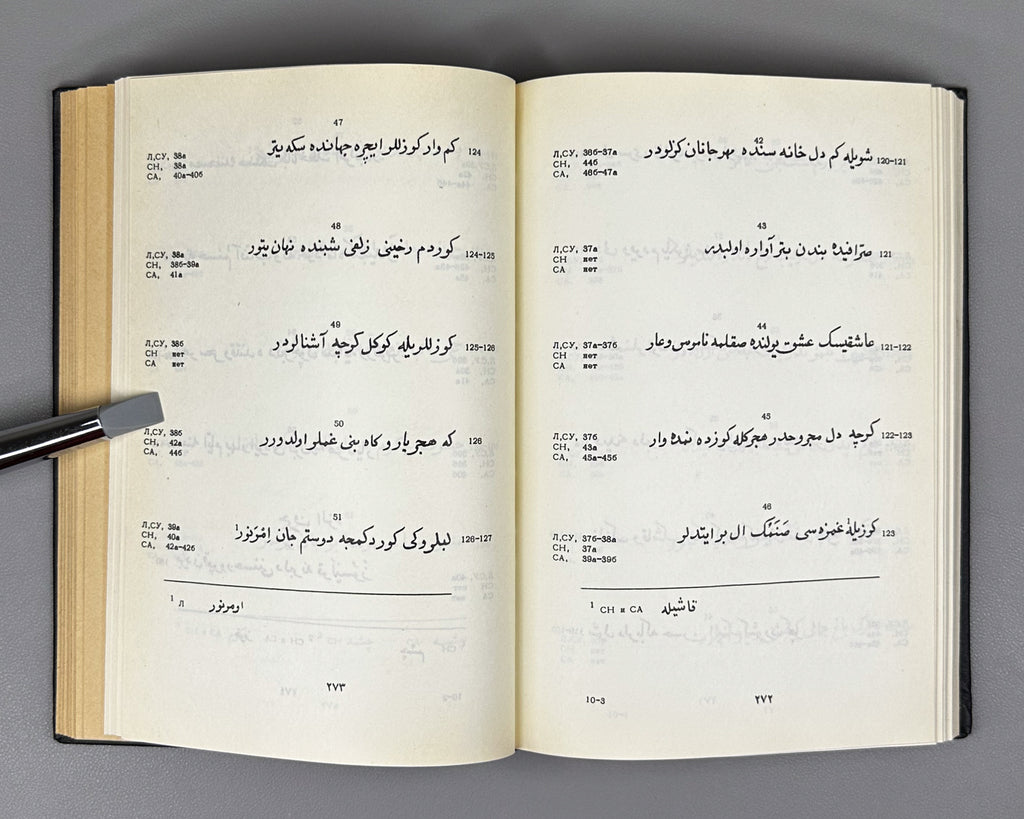 42
شویله کم دل خانه سنده مهر جانان کزلودر 120-121
Л,СУ, 38б-37а
СН, 44б
СА, 46б-47а
43
بندن بتر آواره اولبدر 121
Л,СУ, 37а
СН нет
СА нет
44
عاشقیسک عشق یولنده صقلمه ناموس وعار 121-122
Л,СУ, 37а-37б
СН нет
СА нет
45
کرچه دل مجروحدر هجرکله کوزده نمده وار 122-123
Л,СУ, 37б
СН, 43а
СА, 45а-45б
46
کوزیله غمزه سی صنمک ال بر ایتدلر 123
Л,СУ, 37б-38а
СН, 37а
СА, 39а-39б
1 СН и СА قاشیله
10-3
٢٧٢
47
کم وار کوزللر ایچره جهانده سکه یتر 124
Л,СУ, 38а
СН, 38а
СА, 40а-40б
48
کوردم رخینی زلفی شبنده نهان یتور 124-125
Л,СУ, 38а
СН, 38б-39а
СА, 41а
49
کوزللریله کوکل کرچه آشنالردر 125-126
Л,СУ, 38б
СН нет
СА нет
50
که هجر یار و کاه بنی غملو اولدورر 126
Л,СУ, 38б
СН, 42а
СА, 44б
51
لبلروکی کوردکمجه دوستم جان امرنور1 126-127
Л,СУ, 39а
СН, 40а
СА, 42а-42б
1 Л اومرنور
٢٧٣